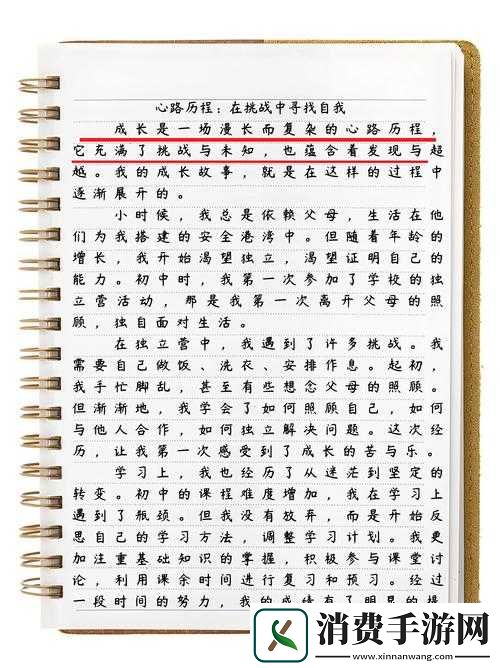 心路历程：在挑战中寻找自我
成长是一场漫长而复杂的心路历程，
它充满了挑战与未知，也蕴含着发现与超
越。我的成长故事，就是在这样的过程中
逐渐展开的。
小时候，我总是依赖父母，生活在他
们为我搭建的安全港湾中。但随着年龄的
增长，我开始渴望独立，渴望证明自己的
能力。初中时，我第一次参加了学校的独
立营活动，那是我第一次离开父母的照
顾，独自面对生活。
在独立营中，我遇到了许多挑战。我
需要自己做饭、洗衣、安排作息。起初，
我手忙脚乱，甚至有些想念父母的照顾。
但渐渐地，我学会了如何照顾自己，如何
与他人合作，如何独立解决问题。这次经
历，让我第一次感受到了成长的苦与乐。
学习上，我也经历了从迷茫到坚定的
转变。初中的课程难度增加，我在学习上
遇到了瓶颈。但我没有放弃，而是开始反
思自己的学习方法，调整学习计划。我更
加注重基础知识的掌握，积极参与课堂讨
论，利用课余时间进行复习和预习。经过
一段时间的努力，我的成绩有了明显的提
消费手游网
www.xinnanwang.com